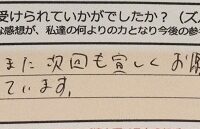 受けられていかがでしたか？（ズ
な感想が、私達の何よりの力となり今後の参
また 次回も宜しく お願
ています。